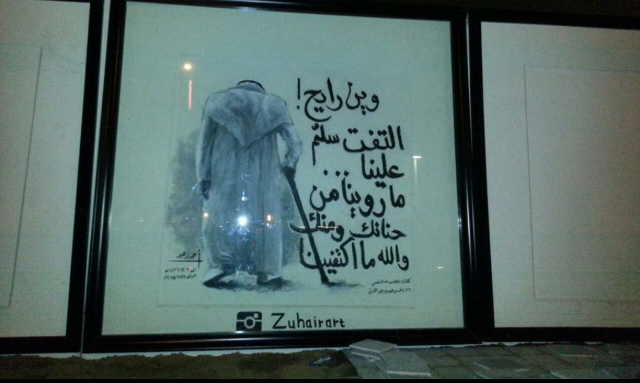 وين رايح!
التفت سلّم
علينا
ما روينا... من
حنانك ومنك
والله ما اكتفينا
Zuhairart